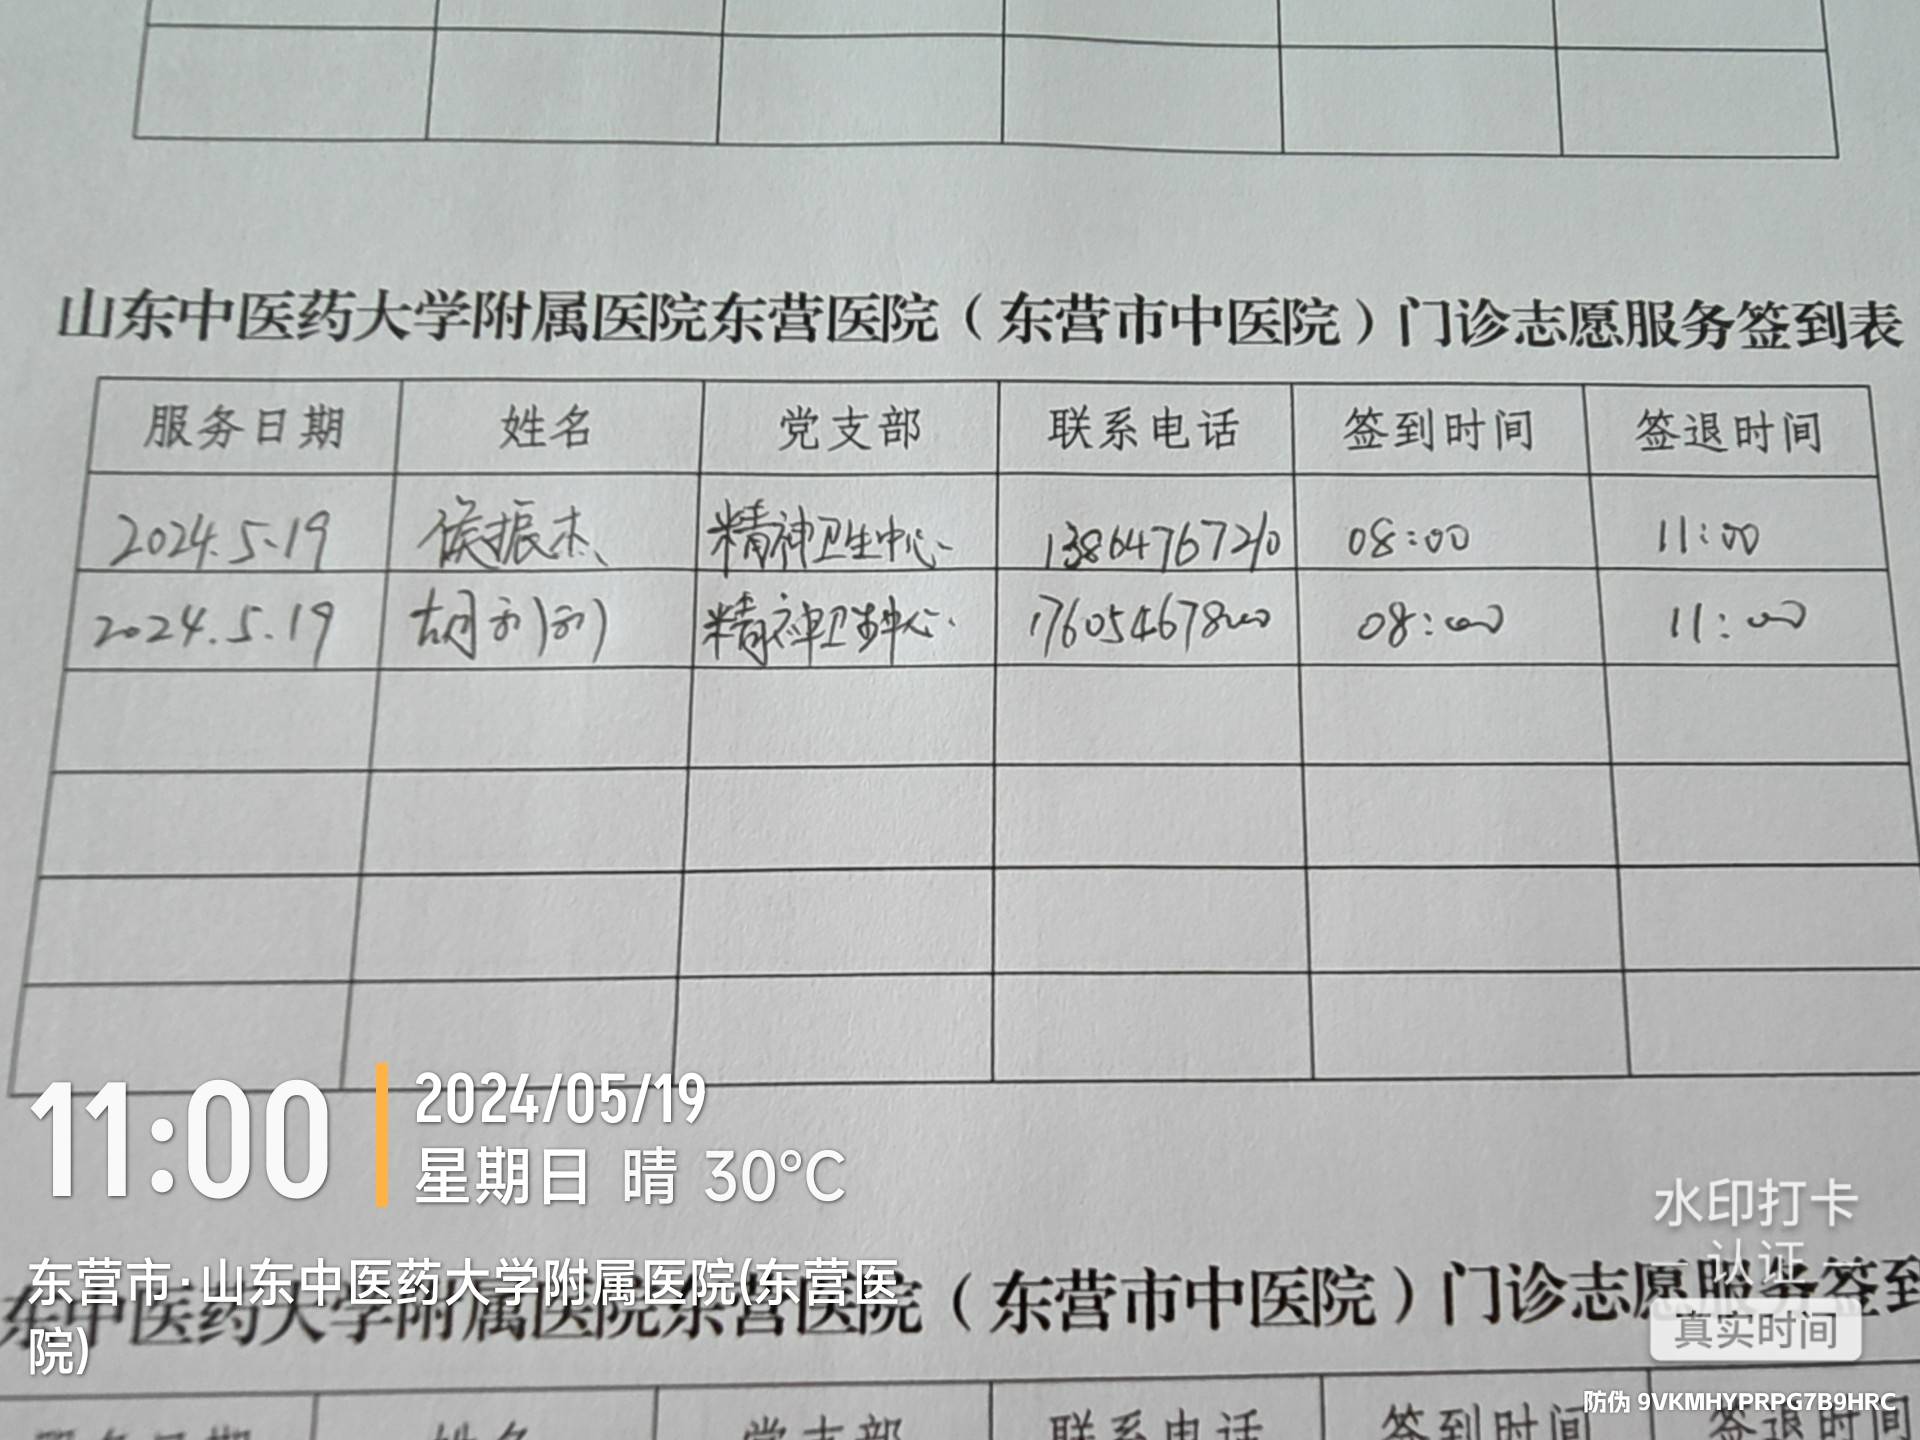 山东中医药大学附属医院东营医院（东营市中医院）门诊志愿服务签到表
服务日期 姓名 党支部 联系电话 签到时间 签退时间
2024.5.19 侯振杰 精神卫生中心 13864767210 08:00 11:00
2024.5.19 胡 精神卫生中心 17605467800 08:00 11:00
11:00
2024/05/19
星期日 晴 30°C
东营市·山东中医药大学附属医院(东营医
院)
水印打卡
认证
真实时间
东中医药大学附属医院东营医院（东营市中医院）门诊志愿服务签到
防伪 9VKMHYPRPG7B9HRC
服务日期 姓名 党支部 联系电话 签到时间 签退时间